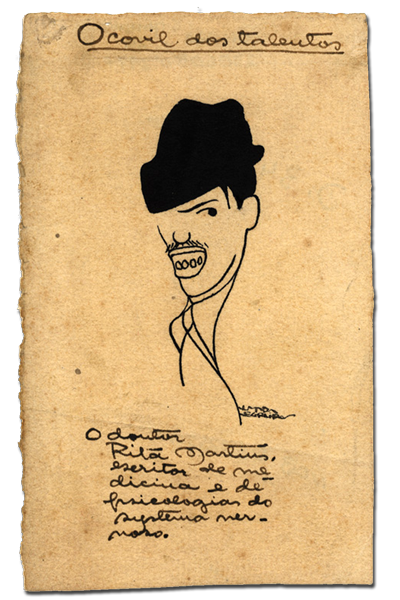 O covil dos talentos
O doutor
Rita Martins,
escritor de me-
dicina e de
psicologias do
systema ner-
voso.